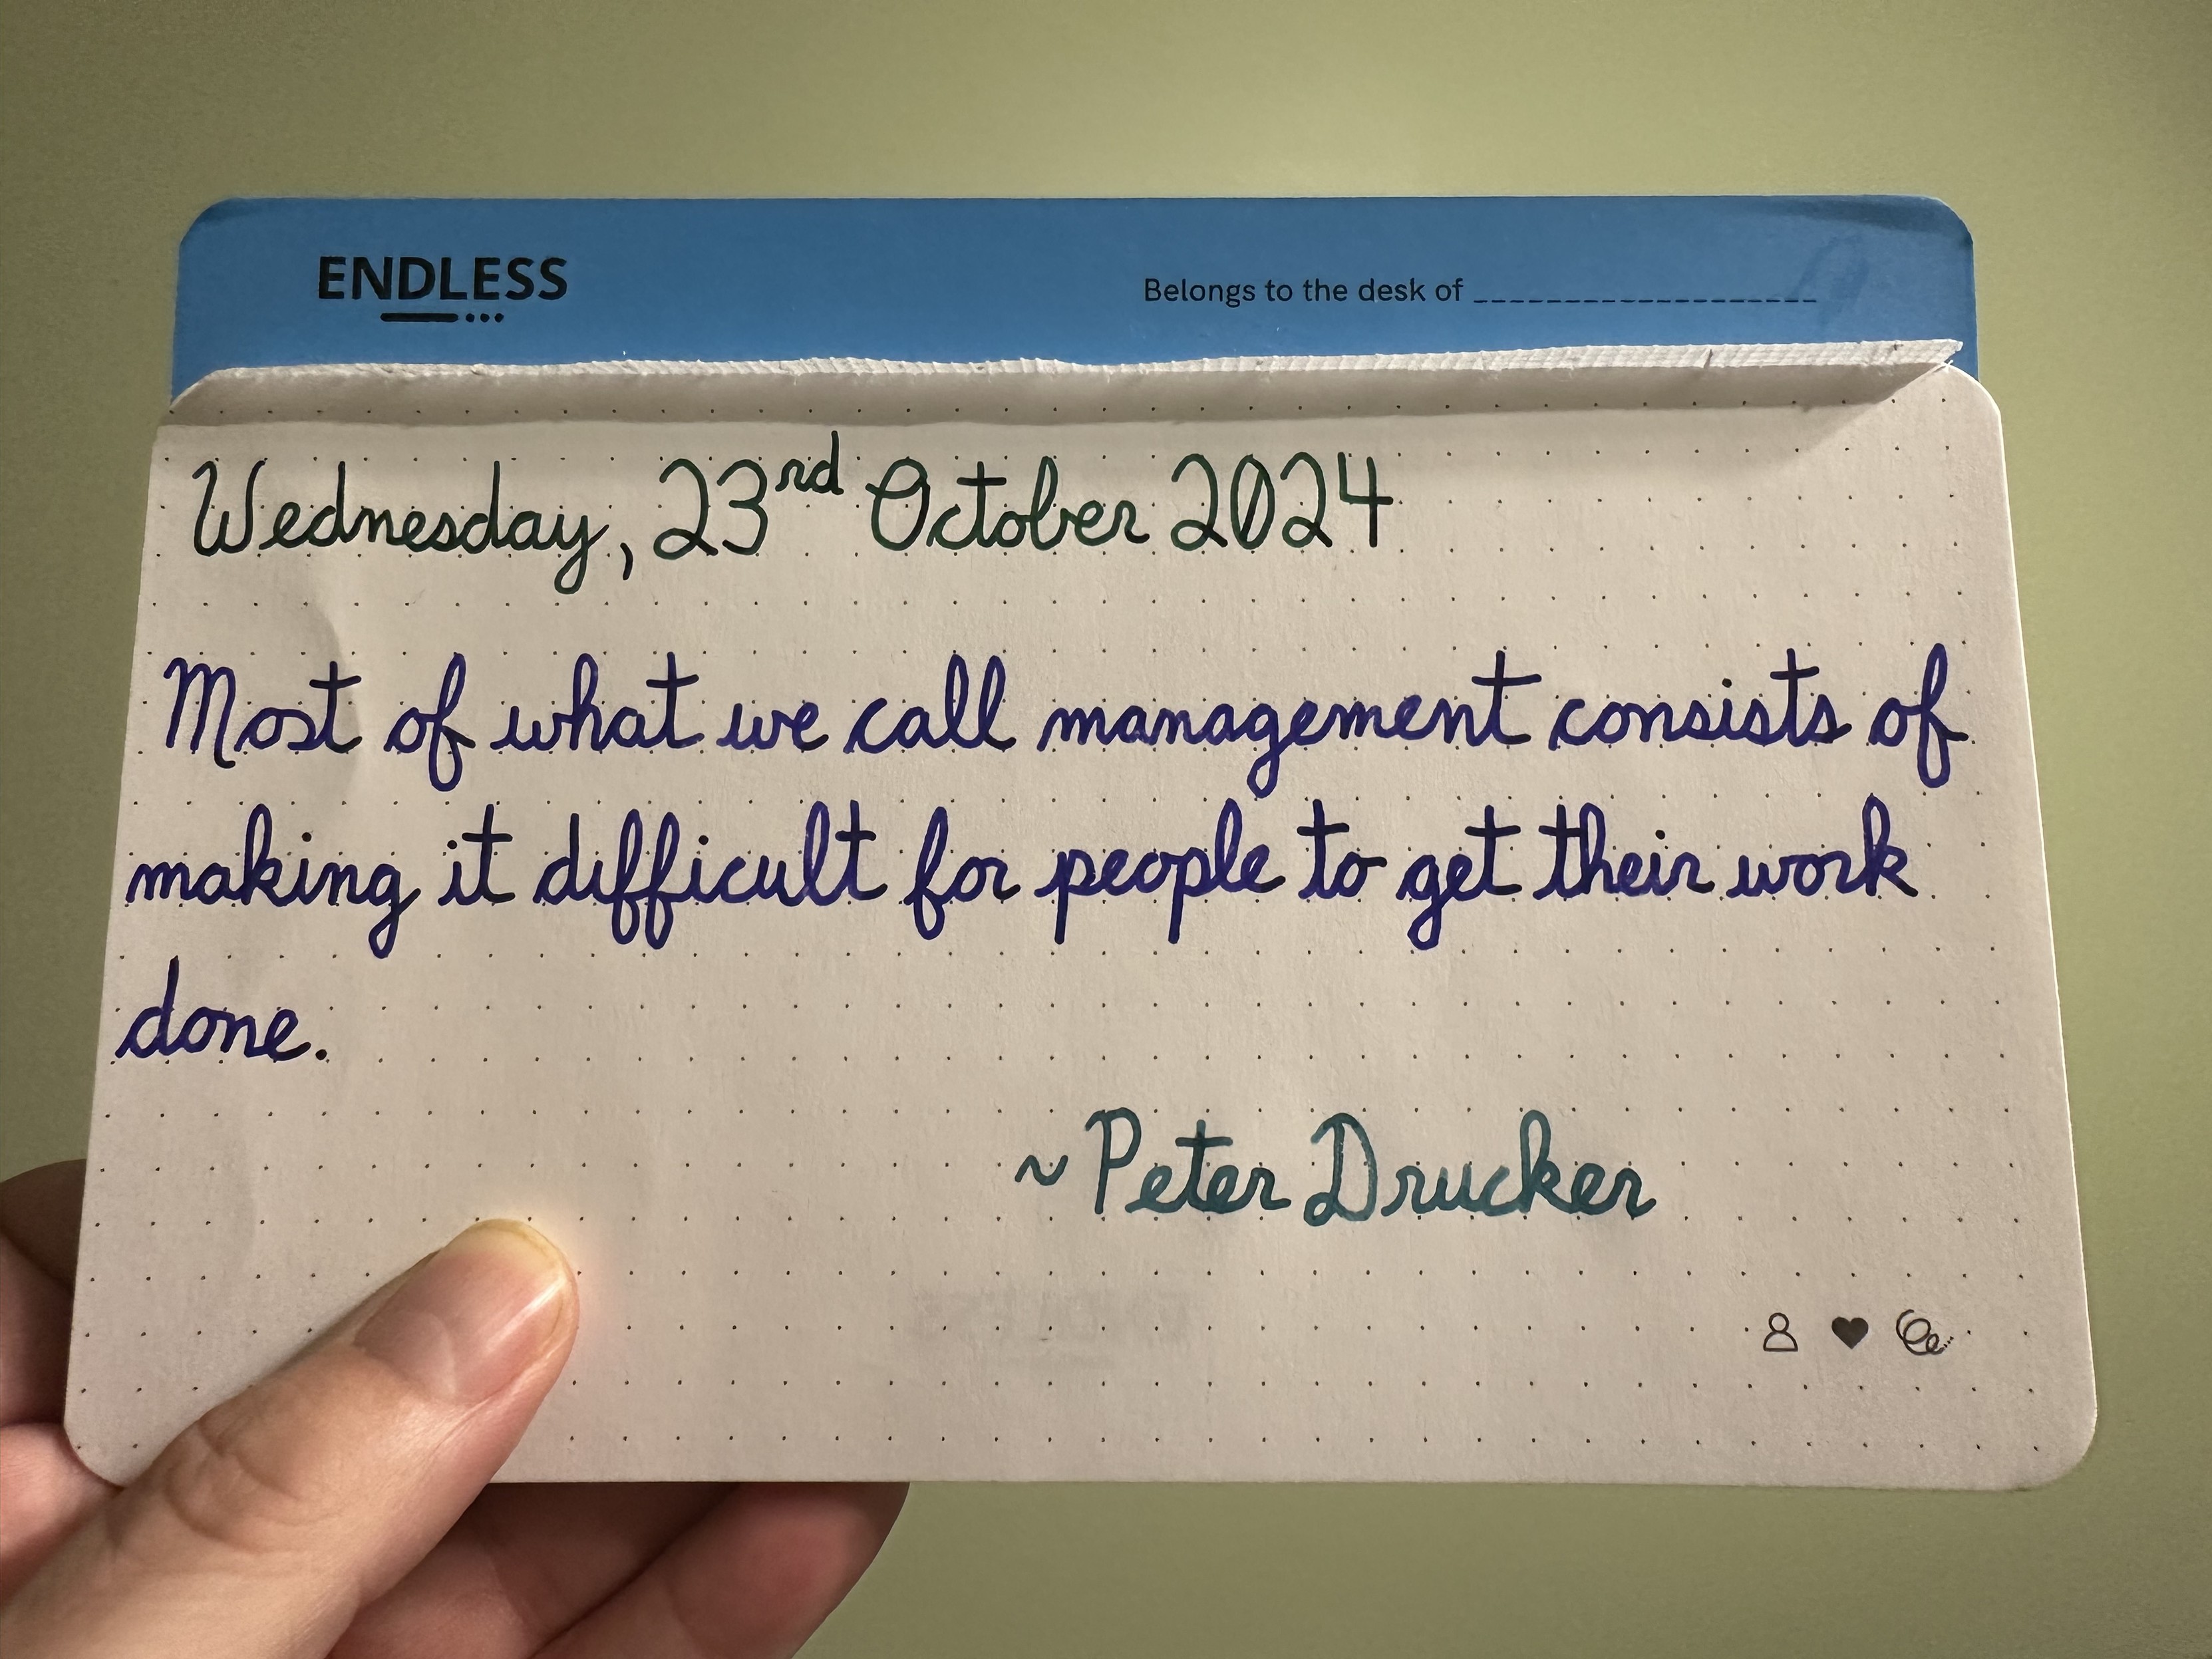 ENDLESS
Belongs to the desk of ____________________
Wednesday, 23rd October 2024
Most of what we call management consists of
making it difficult for people to get their work
done.
~ Peter Drucker